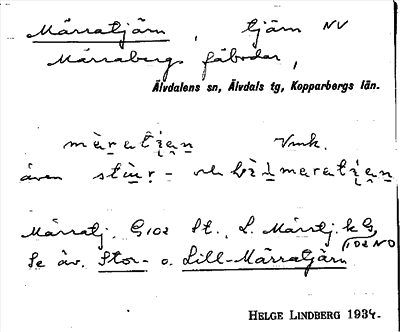 Mårratjärn, tjärn NV
Mårrabergs fäbodar,
Älvdalens sn, Älvdals tg, Kopparbergs län.
Vmk.
även och
Mårratj. G102 St., L. Mårrtj. k G,
102 NO
Se äv. Stor- o. Lill-Mårratjärn
HELGE LINDBERG 1934.